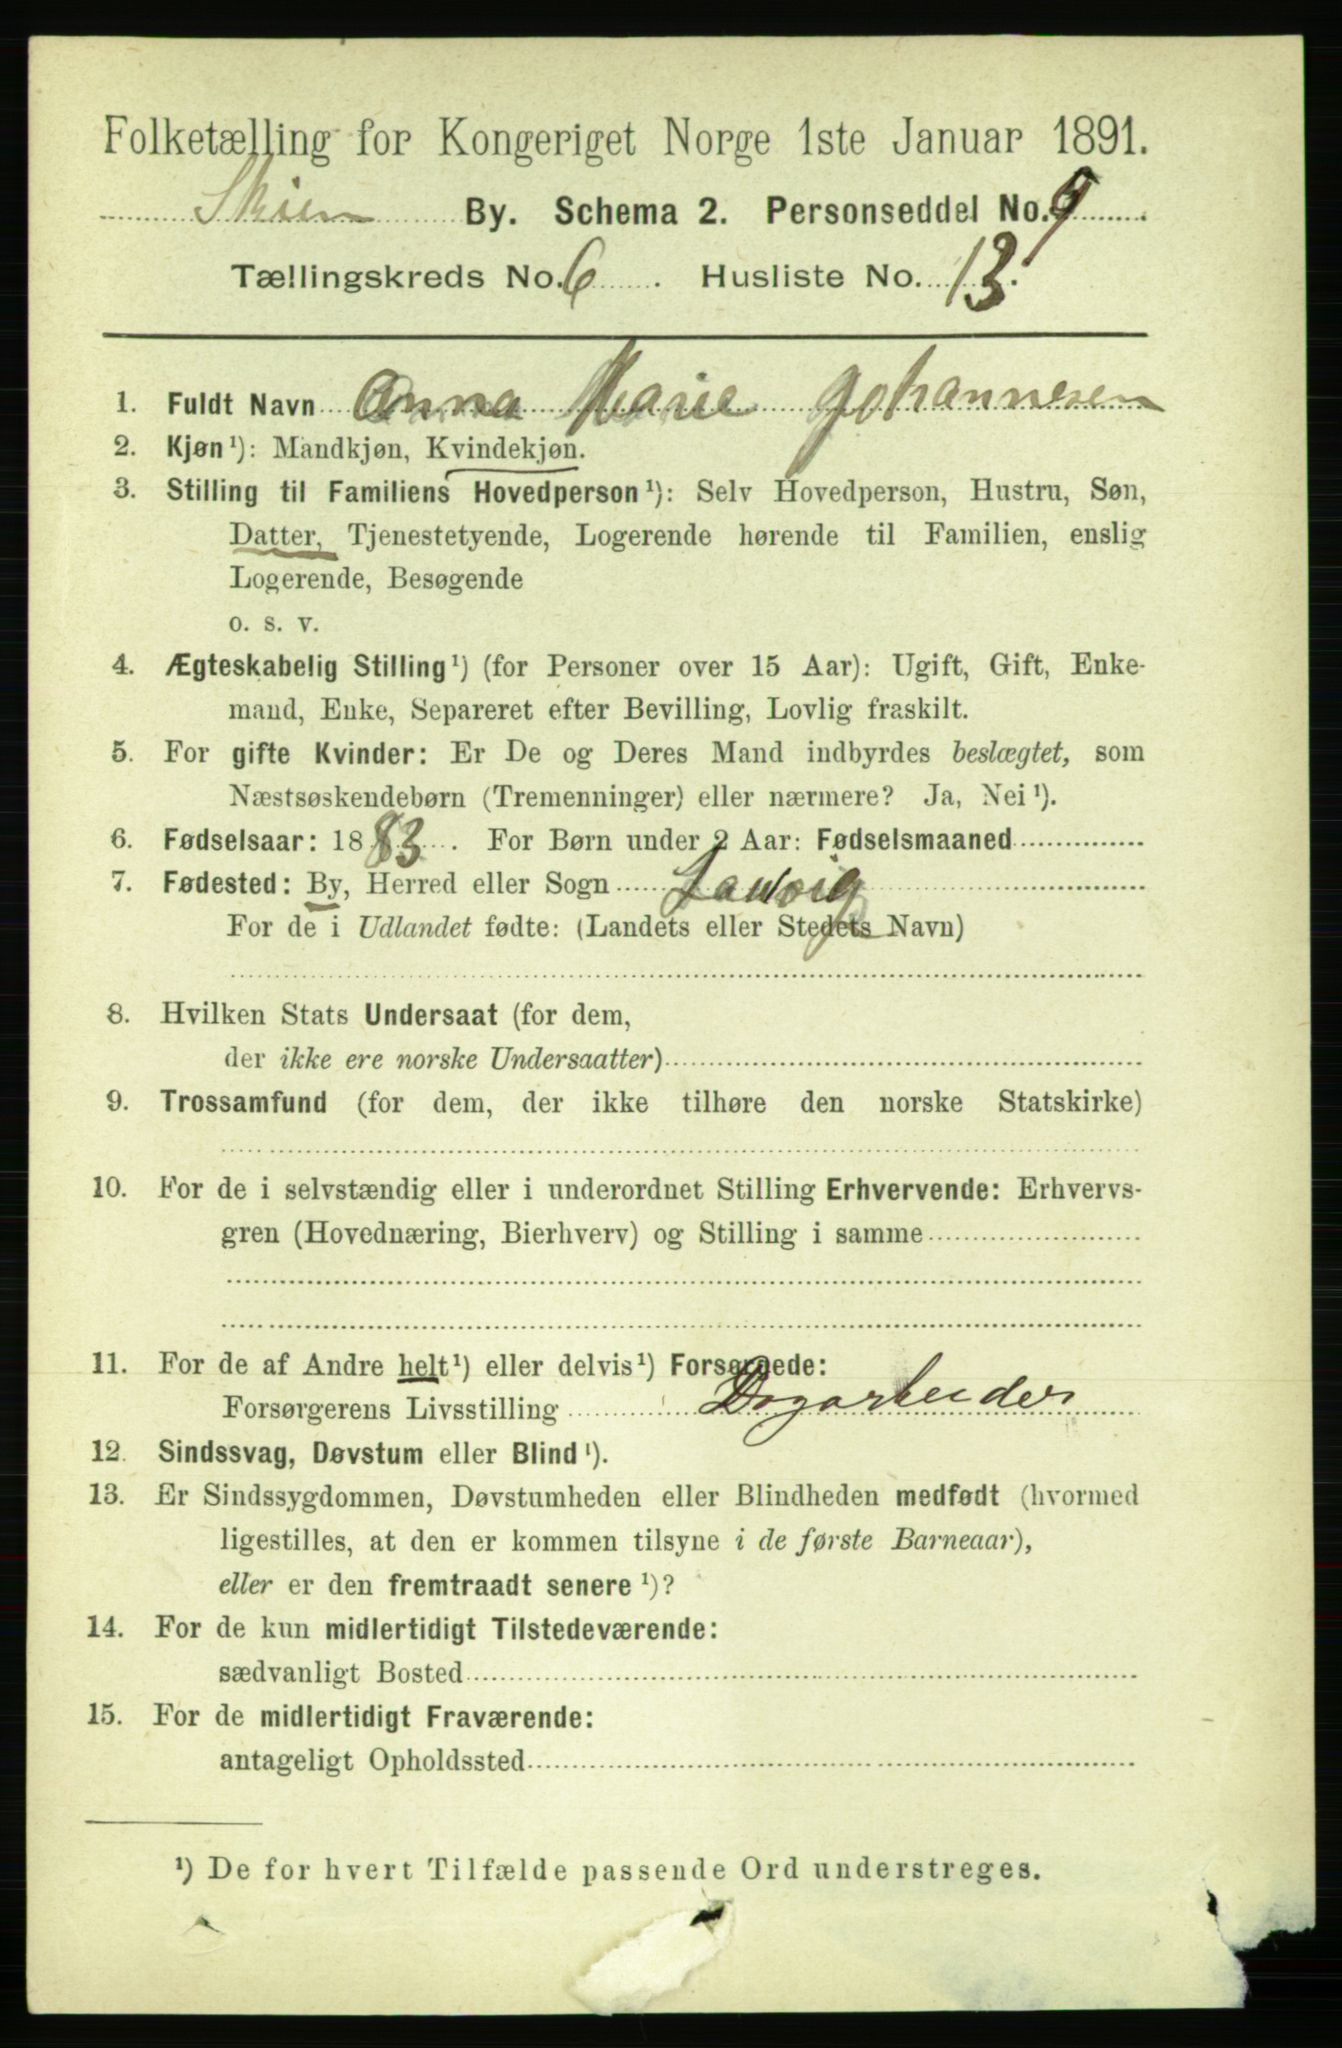 Folketælling for Kongeriget Norge 1ste Januar 1891.
Skien By. Schema 2. Personseddel No. 9.
Tællingskreds No. 6. Husliste No. 13.
1. Fuldt Navn Anna Marie Johannesen
2. Kjøn¹): Mandkjøn, Kvindekjøn.
3. Stilling til Familiens Hovedperson¹): Selv Hovedperson, Hustru, Søn,
Datter, Tjenestetyende, Logerende hørende til Familien, enslig
Logerende, Besøgende
o. s. v.
4. Ægteskabelig Stilling¹) (for Personer over 15 Aar): Ugift, Gift, Enke-
mand, Enke, Separeret efter Bevilling, Lovlig fraskilt.
5. For gifte Kvinder: Er De og Deres Mand indbyrdes beslægtet, som
Næstsøskendebørn (Tremenninger) eller nærmere? Ja, Nei¹).
6. Fødselsaar: 1883. For Børn under 2 Aar: Fødselsmaaned
7. Fødested: By, Herred eller Sogn Laurvig
For de i Udlandet fødte: (Landets eller Stedets Navn)
8. Hvilken Stats Undersaat (for dem,
der ikke ere norske Undersaatter)
9. Trossamfund (for dem, der ikke tilhøre den norske Statskirke)
10. For de i selvstændig eller i underordnet Stilling Erhvervende: Erhvervs-
gren (Hovednæring, Bierhverv) og Stilling i samme
11. For de af Andre helt¹) eller delvis¹) Forsørgede:
Forsørgerens Livsstilling Dagarbeider
12. Sindssvag, Døvstum eller Blind¹).
13. Er Sindssygdommen, Døvstumheden eller Blindheden medfødt (hvormed
ligestilles, at den er kommen tilsyne i de første Barneaar),
eller er den fremtraadt senere¹)?
14. For de kun midlertidigt Tilstedeværende:
sædvanligt Bosted
15. For de midlertidigt Fraværende:
antageligt Opholdssted
¹) De for hvert Tilfælde passende Ord understreges.